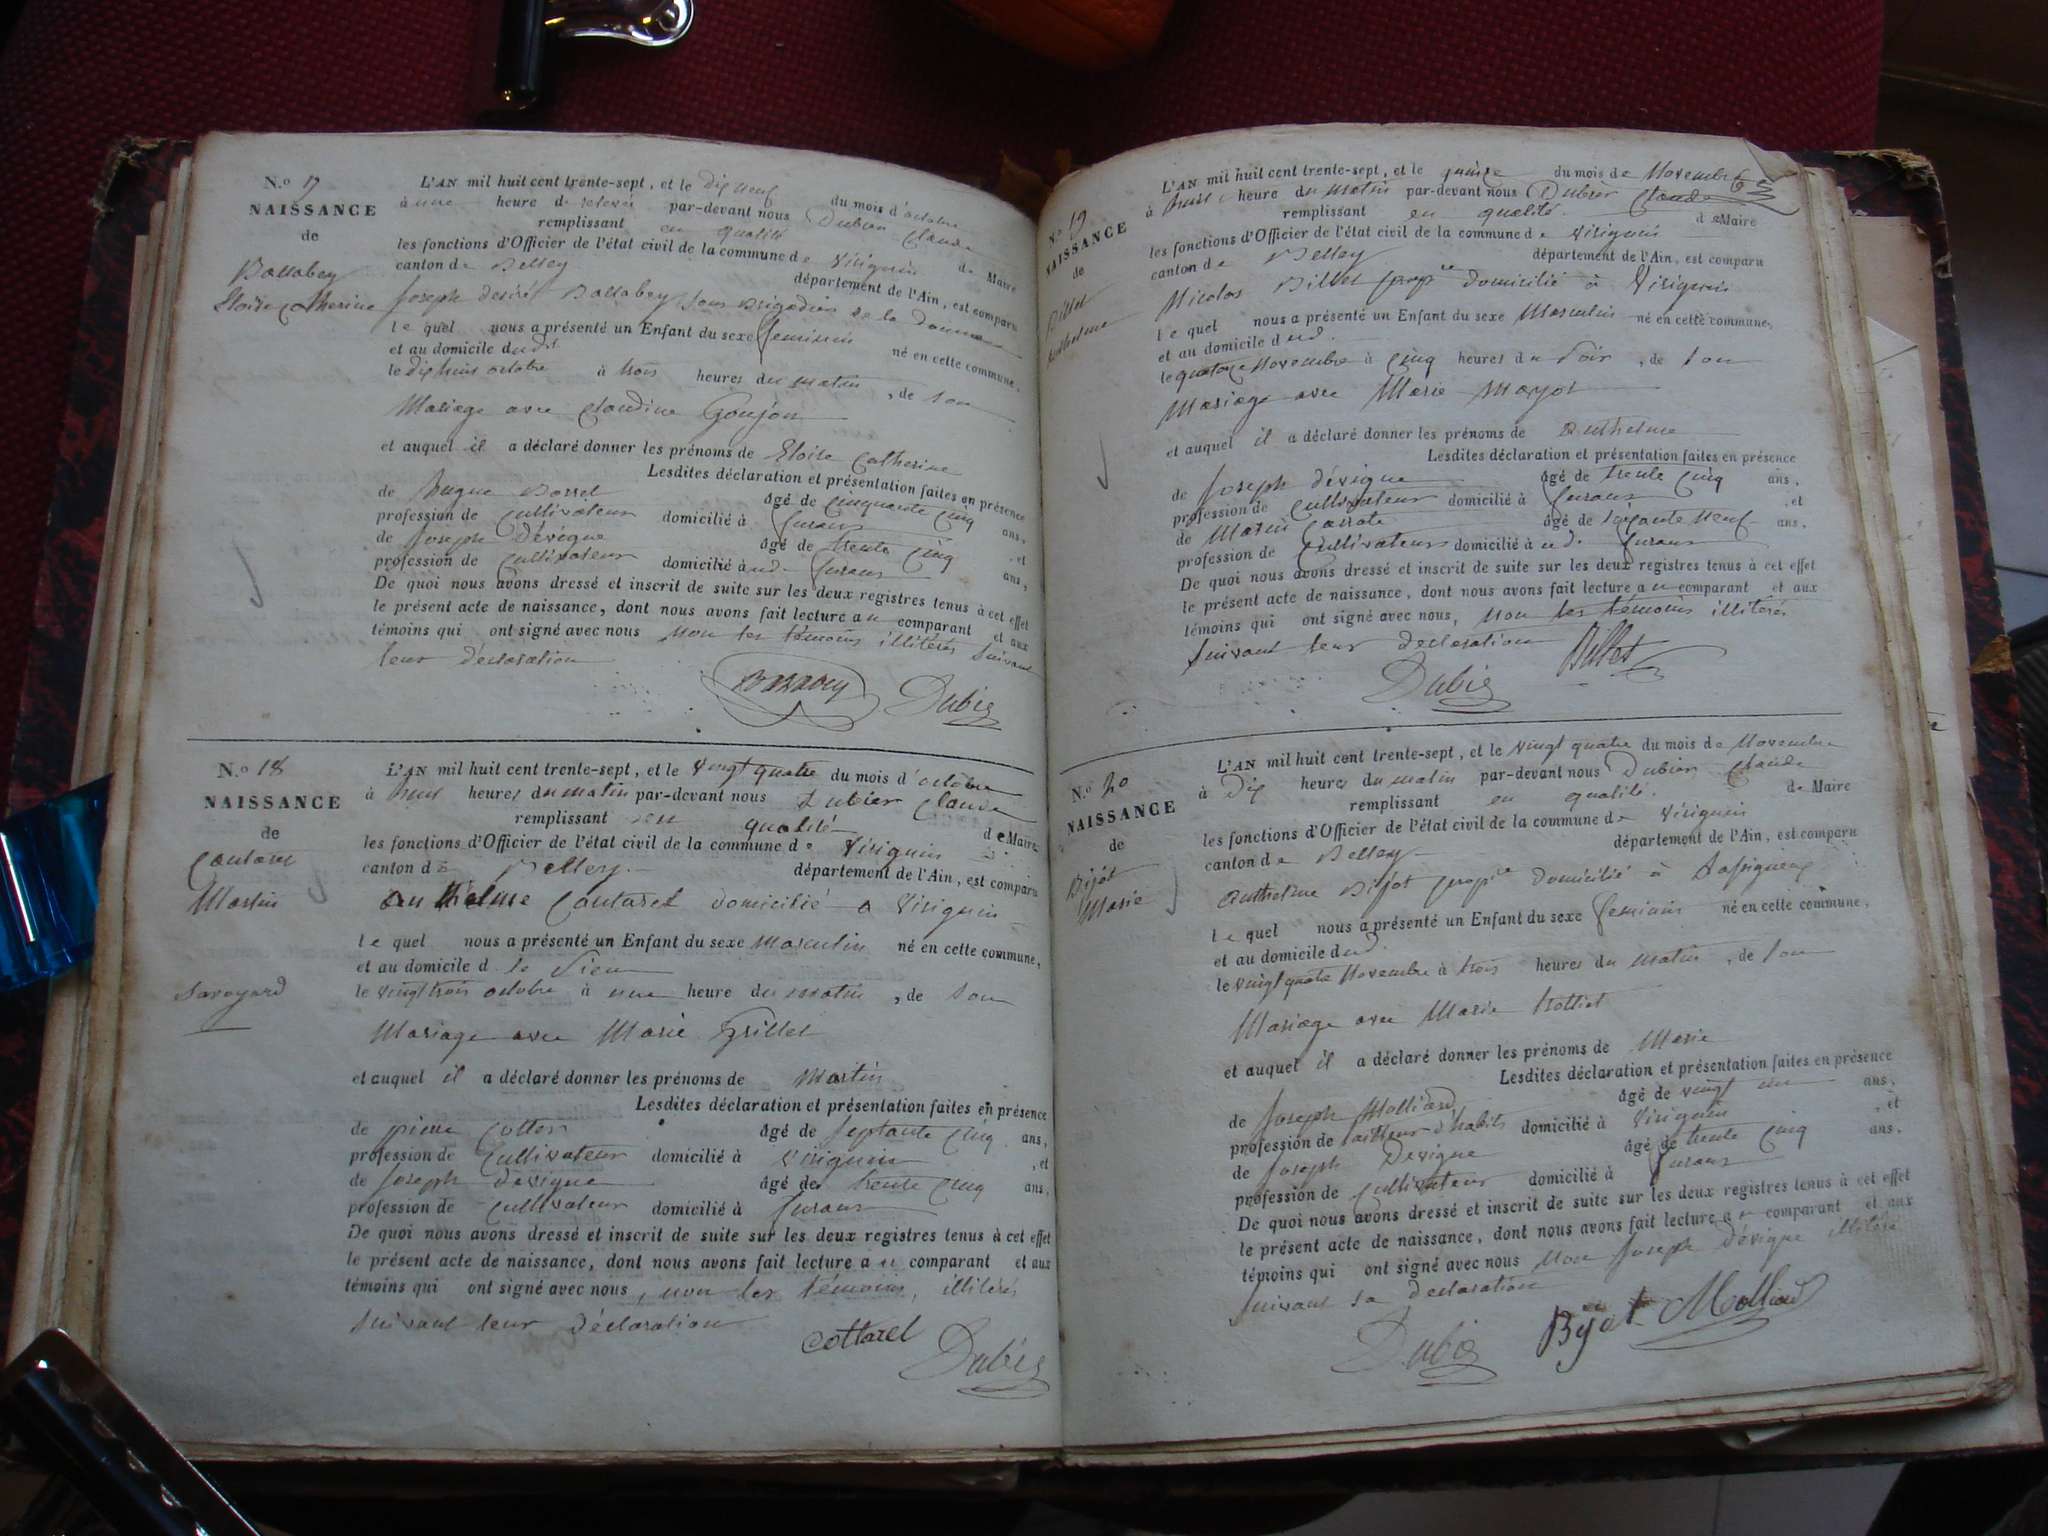 N.º 17
NAISSANCE
de
Ballabey
Eloise Catherine
L'AN mil huit cent trente-sept, et le dix neuf du mois d'octobre
à une heure de relevée par-devant nous Dubier Claude
remplissant en qualité de Maire
les fonctions d'Officier de l'état civil de la commune de Virignin
canton de Belley département de l'Ain, est comparu
Joseph désiré Ballabey sous Brigadier de la Douane
le quel nous a présenté un Enfant du sexe feminin né en cette commune,
et au domicile dudit
le dix huit octobre à trois heures du matin, de son
Mariage avec Claudine Goujon
et auquel il a déclaré donner les prénoms de Eloise Catherine
Lesdites déclaration et présentation faites en présence
de hugue Borret âgé de Cinquante Cinq ans,
profession de Cultivateur domicilié à furans, et
de Joseph Dévigne âgé de trente Cinq ans,
profession de Cultivateur domicilié à ud. furans
De quoi nous avons dressé et inscrit de suite sur les deux registres tenus à cet effet
le présent acte de naissance, dont nous avons fait lecture au comparant et aux
témoins qui ont signé avec nous non les témoins illitérés suivant
leur déclaration
Ballabey Dubier
N.º 18
NAISSANCE
de
Coutaret
Martin
Savoyard
L'AN mil huit cent trente-sept, et le vingt quatre du mois d'octobre
à huit heures du matin par-devant nous Dubier Claude
remplissant en qualité de Maire
les fonctions d'Officier de l'état civil de la commune de Virignin
canton de Belley département de l'Ain, est comparu
anthelme Coutaret domicilié a Virignin
le quel nous a présenté un Enfant du sexe masculin né en cette commune,
et au domicile d le sien
le vingt trois octobre à une heure du matin, de son
Mariage avec Marie Grillet
et auquel il a déclaré donner les prénoms de Martin
Lesdites déclaration et présentation faites en présence
de pierre Cotton âgé de septante Cinq ans,
profession de Cultivateur domicilié à Virignin, et
de Joseph Dévigne âgé de trente Cinq ans,
profession de Cultivateur domicilié à furans
De quoi nous avons dressé et inscrit de suite sur les deux registres tenus à cet effet
le présent acte de naissance, dont nous avons fait lecture au comparant et aux
témoins qui ont signé avec nous, non les témoins, illitérés
suivant leur Déclaration
Cottarel Dubier
N.º 19
NAISSANCE
de
Billet
Anthelme
L'AN mil huit cent trente-sept, et le quinze du mois de Novembre
à huit heure du matin par-devant nous Dubier Claude
remplissant en qualité de Maire
les fonctions d'Officier de l'état civil de la commune de Virignin
canton de Belley département de l'Ain, est comparu
Nicolas Billet prop.re domicilié à Virignin
le quel nous a présenté un Enfant du sexe Masculin né en cette commune,
et au domicile dud.
le quatorze Novembre à cinq heures du soir, de son
Mariage avec Marie Mayot
et auquel il a déclaré donner les prénoms de Anthelme
Lesdites déclaration et présentation faites en présence
de Joseph dévigne âgé de trente Cinq ans,
profession de Cultivateur domicilié à furans, et
de Martin Carrote âgé de soixante Neuf ans,
profession de Cultivateur domicilié à ud. furans
De quoi nous avons dressé et inscrit de suite sur les deux registres tenus à cet effet
le présent acte de naissance, dont nous avons fait lecture au comparant et aux
témoins qui ont signé avec nous, non les témoins illitérés
suivant leur declaration
Billet
Dubier
N.º 20
NAISSANCE
de
Bijot
Marie
L'AN mil huit cent trente-sept, et le vingt quatre du mois de Novembre
à Dix heures du matin par-devant nous Dubier Claude
remplissant en qualité. de Maire
les fonctions d'Officier de l'état civil de la commune de Virignin
canton de Belley département de l'Ain, est comparu
Anthelme Bijot prop.re domicilié à
le quel nous a présenté un Enfant du sexe feminin né en cette commune,
et au domicile dud.
le vingt quatre Novembre à trois heures du matin, de son
Mariage avec Marie
et auquel il a déclaré donner les prénoms de Marie
Lesdites déclaration et présentation faites en présence
de Joseph Molliard âgé de vingt un ans,
profession de tailleur d'habits domicilié à Virignin, et
de Joseph Devigne âgé de trente Cinq ans,
profession de Cultivateur domicilié à furans
De quoi nous avons dressé et inscrit de suite sur les deux registres tenus à cet effet
le présent acte de naissance, dont nous avons fait lecture au comparant et aux
témoins qui ont signé avec nous non Joseph Dévigne illitéré
suivant sa declaration
Dubier Bijot Molliard